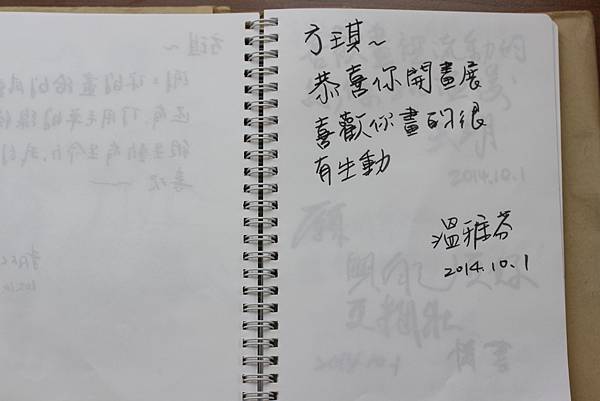 方琪~
恭喜你開畫展
喜歡你畫的很
有生動
溫雅芬
2014.10.1